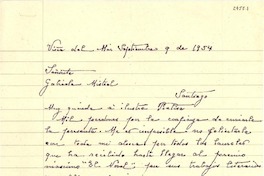 Viña del Mar Septiembre 9 de 1954
Señorita
Gabriela Mistral
Santiago
Muy querida e ilustre
Mil perdones por la confianza de enviarle
la presente. Me es imposible no felicitarla
con toda mi alma por todos los
que ha recibido hasta llegar al premio
máximo "El Nobel" por sus trabajos literarios